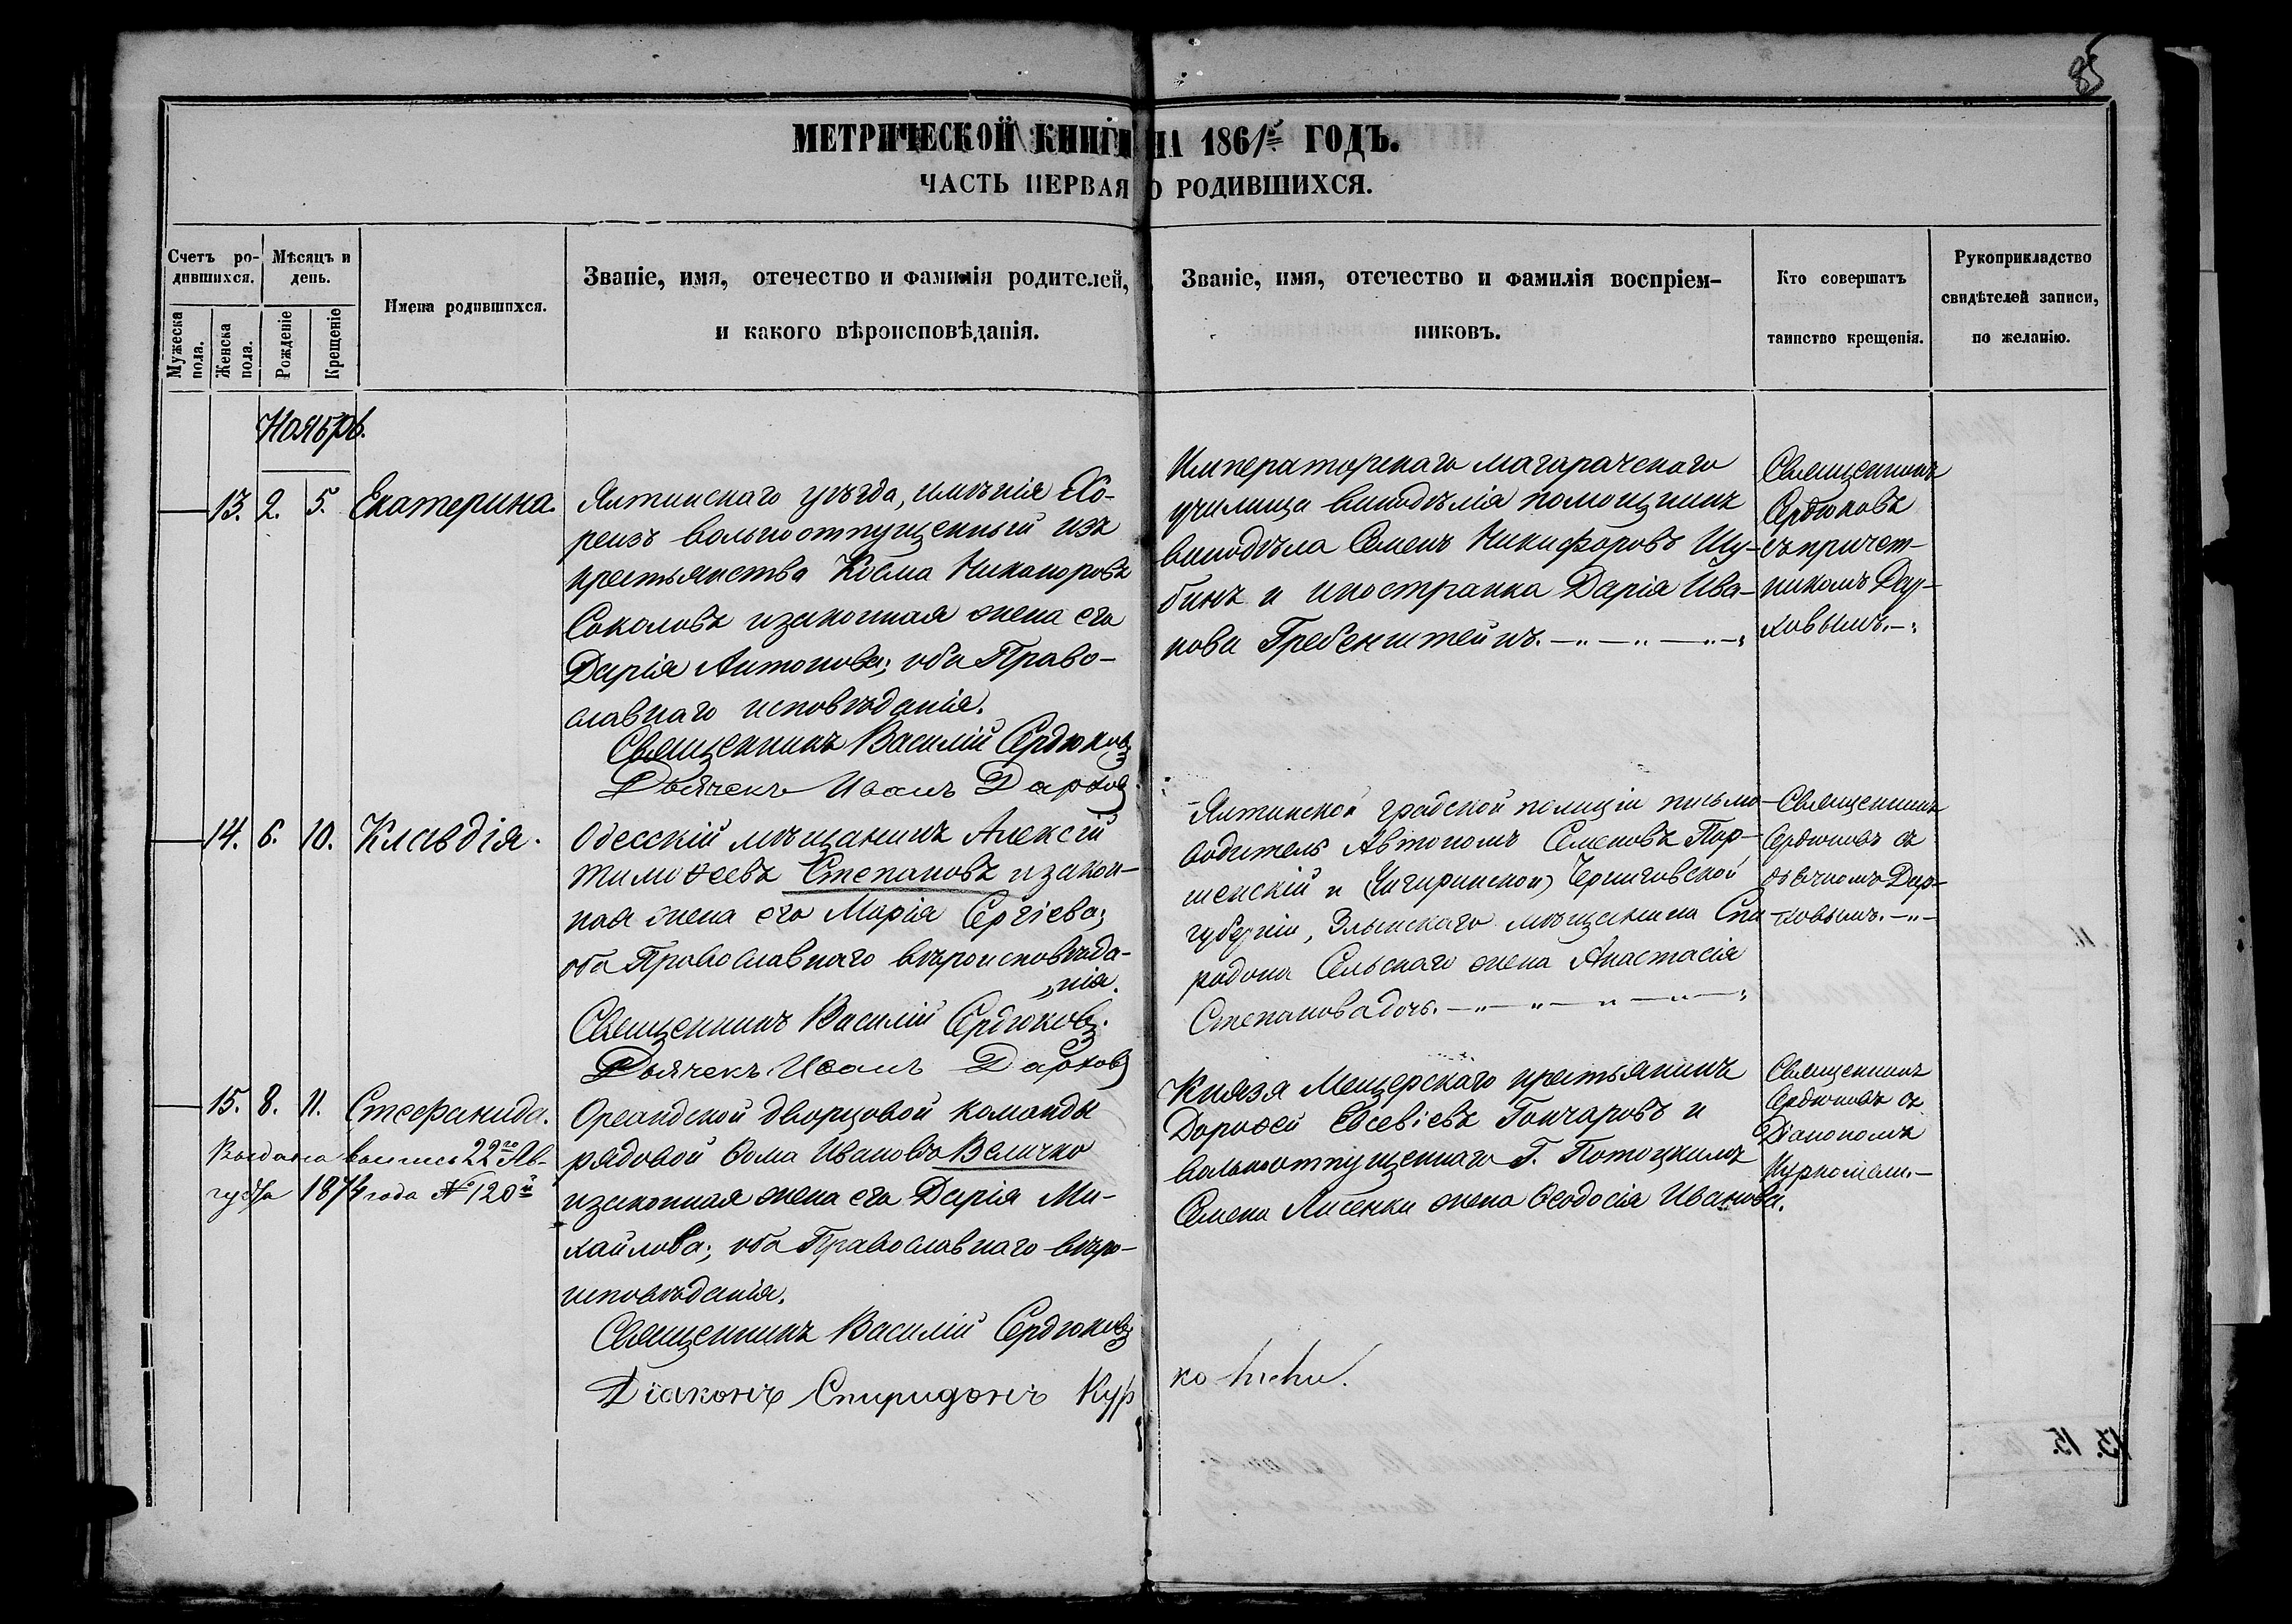 85
МЕТРИЧЕСКОЙ КНИГИ НА 1861 ГОДЪ.
ЧАСТЬ ПЕРВАЯ О РОДИВШИХСЯ.
Счетъ ро-
дившихся.
Мужеска пола.
Женска пола.
Мѣсяцъ и
день.
Рожденіе
Крещеніе
Имена родившихся.
Званіе, имя, отечество и фамилія родителей,
и какого вѣроисповѣданія.
Званіе, имя, отечество и фамилія воспріем-
никовъ.
Кто совершатъ
таинство крещенія.
Рукоприкладство
свидѣтелей записи,
по желанію.
Ноябрь.
13. 2. 5. Екатерина.
Ялтинскаго уѣзда, имѣнія Хо-
реизъ вольноотпущенный изъ
крестьянства Косма Никаноровъ
Соколовъ и законная жена его
Дарія Антонова; оба Право-
славнаго исповѣданія.
Священникъ Василій Сердюковъ
Дьячекъ Иванъ Дарховъ
Императорскаго магарачскаго
училища винодѣлія помощникъ
винодѣла Семенъ Никифоровъ Шу-
бинъ и иностранка Дарія Ива-
нова Гребенштейнъ.
Священникъ
Сердюковъ
съ причет-
никомъ Дар-
ховымъ.
14. 6. 10. Клавдія.
Одесскій мѣщанинъ Алексій
Тимоѳеевъ Степановъ и закон-
ная жена его Марія Сергіева;
оба Православнаго вѣроисповѣда-
нія.
Священникъ Василій Сердюковъ.
Дьячекъ Иванъ Дарховъ
Ялтинской градской полиціи письмо-
водитель Автономъ Семеновъ Пор-
шенскій и (Чигиринской) Черниговской
губерніи, Злынскаго мѣщанина Спи-
ридона Сельскаго жена Анастасія
Степанова дочь.
Священникъ
Сердюковъ съ
дьячкомъ Дар-
ховымъ.
15. 8. 11. Стефанида.
Выдана выпись 22го Ав-
густа 1874 года № 120й
Ореандской дворцовой команды
рядовой Ѳома Ивановъ Величко
и законная жена его Дарія Ми-
хайлова; оба Православнаго вѣро-
исповѣданія.
Священникъ Василій Сердюковъ
Діаконъ Спиридонъ Кур
Князя Мещерскаго крестьянинъ
Дороѳей Евсевіевъ Гончаровъ и
вольноотпущеннаго Г. Потоцкимъ
Семена Лисенки жена Ѳеодосія Иванова.
Священникъ
Сердюковъ съ
Діакономъ